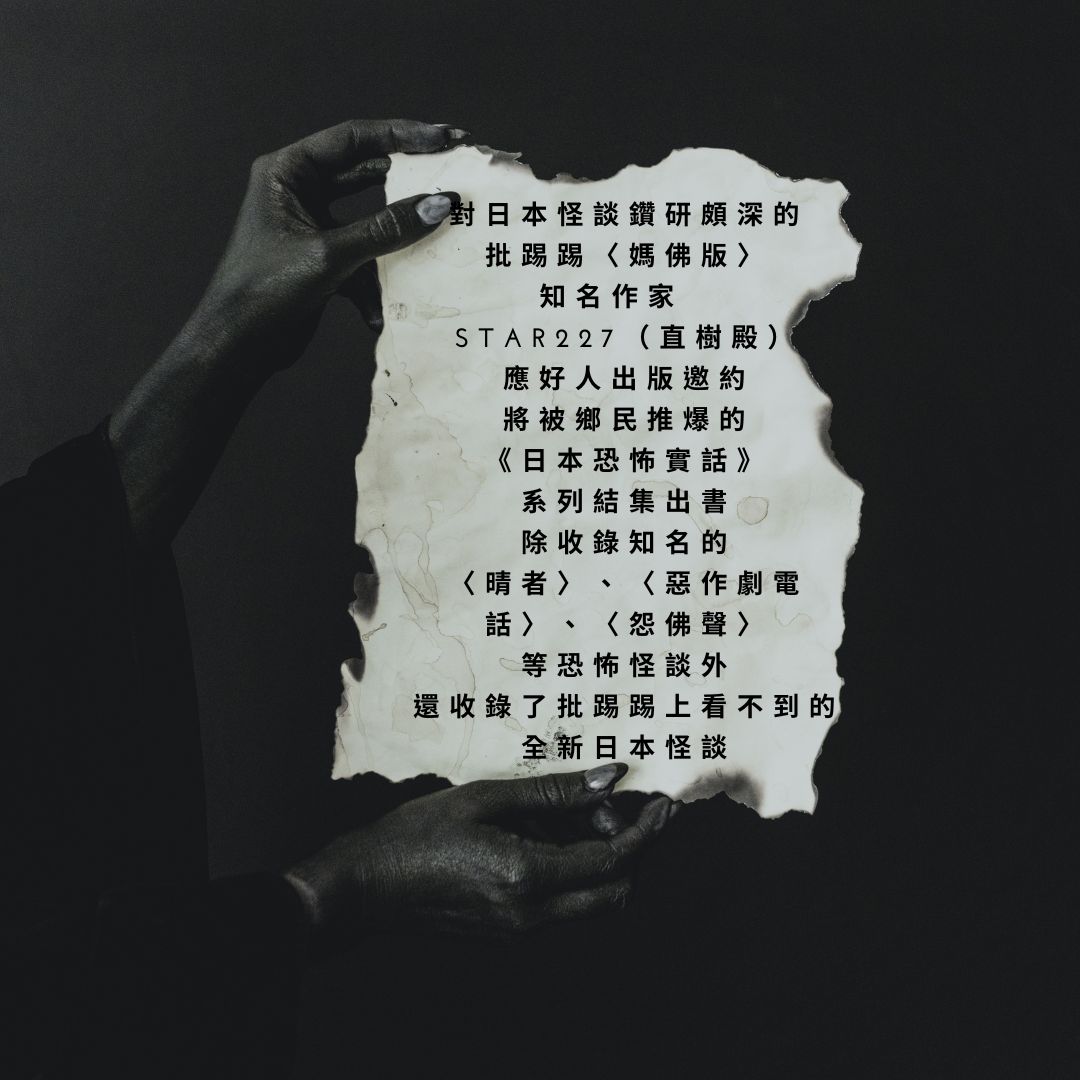 對日本怪談鑽研頗深的
批踢踢〈媽佛版〉
知名作家
STAR227（直樹殿）
應好人出版邀約
將被鄉民推爆的
《日本恐怖實話》
系列結集出書
除收錄知名的
〈晴者〉、〈惡作劇電
話〉、〈怨佛聲〉
等恐怖怪談外
還收錄了批踢踢上看不到的
全新日本怪談